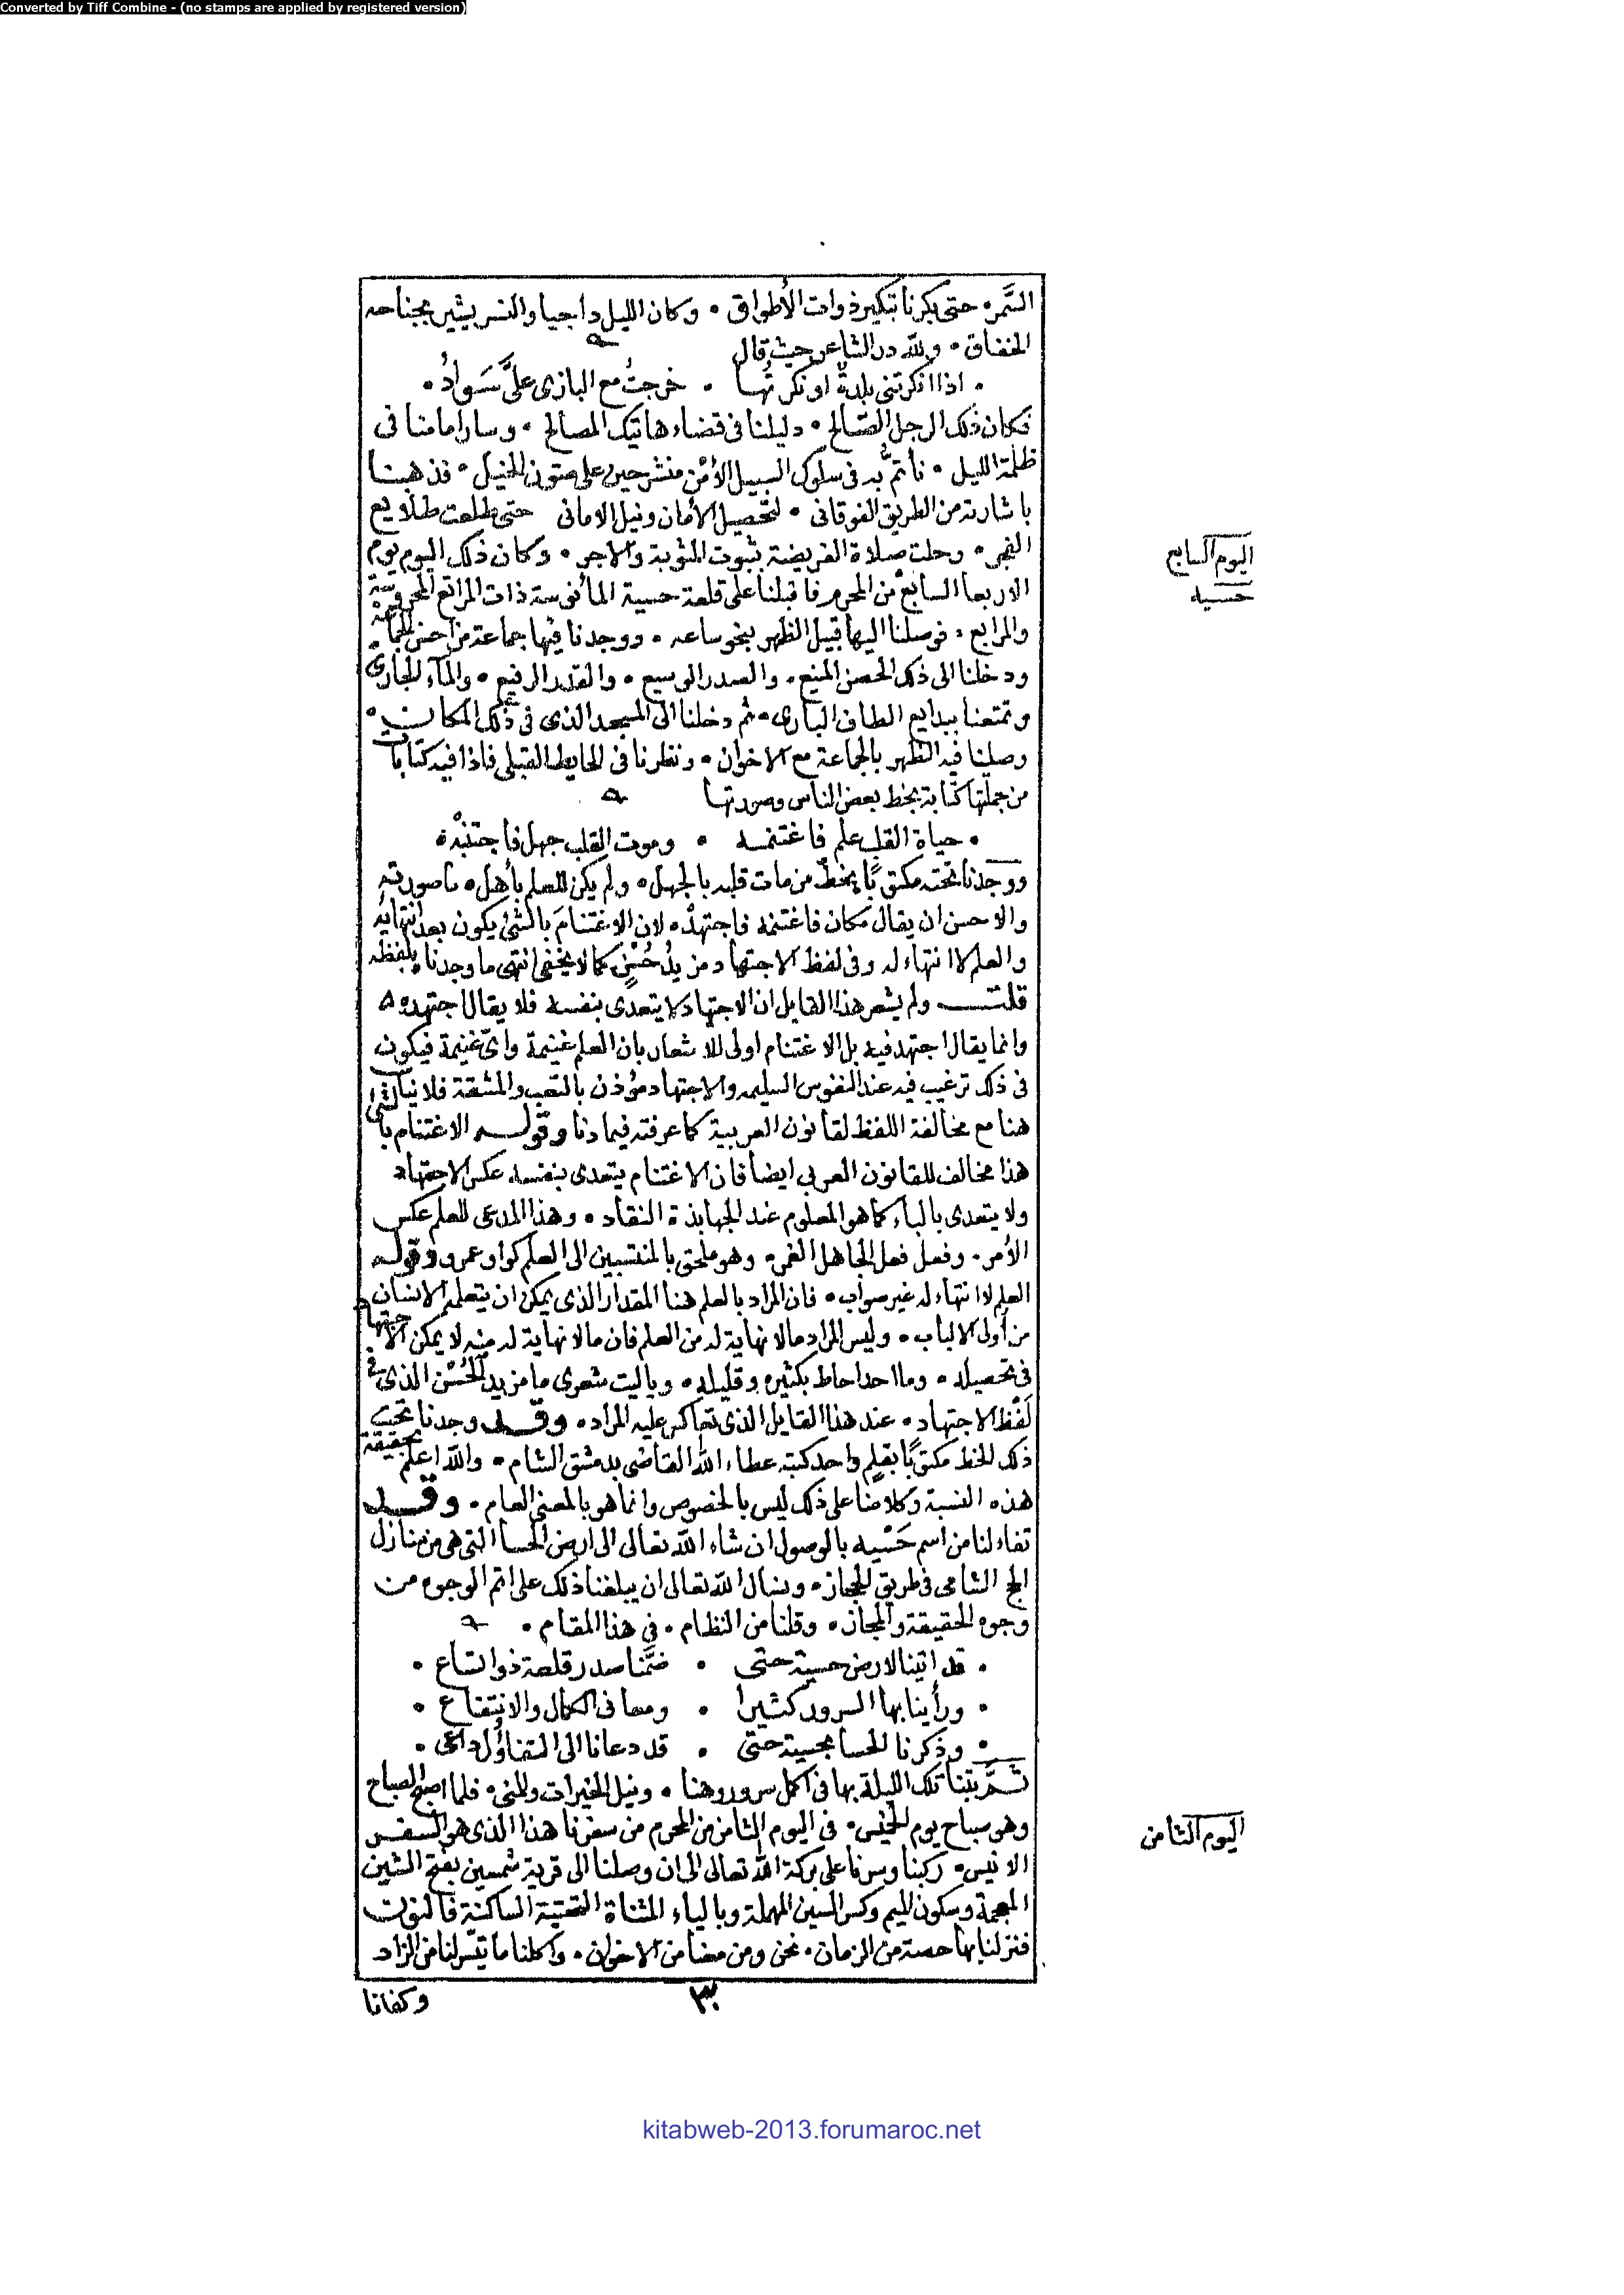 Converted by Tiff Combine - (no stamps are applied by registered version)
السَّمر • حتى بكرنا تبكير ذوات الأطواق • وكان الليل داجيا والنسر يشير بجناحه
الخفاق • ولله در الشاعر حيث قال
• اذا انكرتنى بلدةٌ او نكرتُها • خرجتُ مع البازى علىَّ سَوادُ •
فكان ذلك الرجل الصّالح • دليلنا فى قضاء هاتيك المصالح • وسار امامنا فى
ظلمة الليل • نأتمُّ به فى سلوك السبيل الأمْن منشرحين على متون الخيل • فذهبنا
باشارته من الطريق الفوقانى • لتحصيل الأمان ونيل الامانى حتى طلعت طلايع
الفجر • وحلت صلاة الفريضة بثبوت المثوبة والاجر • وكان ذلك اليوم يوم
الاربعا السابع من المحرم فاقبلنا على قلعة حسية المأنوسة ذات المراتع المحروسة
والمرابع • فوصلنا اليها قبيل الظهر بنحو ساعه • ووجدنا فيها جماعة من احسن الجماعة •
ودخلنا الى ذلك الحصن المنيع • والصدر الوسيع • والقدر الرفيع • والمآء الجارى
وتمتعنا ببدايع الطاف البارى • ثم دخلنا الى المسجد الذى فى ذلك المكان •
وصلينا فيه الظهر بالجماعة مع الاخوان • ونظرنا فى الحايط القبلى فاذا فيه كتابات
من جملتها كتابة بخط بعض الناس وصورتها
• حياة القلب علم فاغتنمه • وموت القلب جهل فاجتنبْه •
ووجدنا تحته مكتوبًا بخط من مات قلبه بالجهل • ولم يكن للعلم بأهل • ما صورته
والاحسن ان يقال مكان فاغتنمه فاجتهدْه • لان الاغتنامَ بالشئ يكون بعد انتهايه
والعلم لا انتهاء له وفى لفظ الاجتهاد مزيدُ حُسْنٍ كما لا يخفى انتهى ما وجدناه بلفظه
قلت ولم يشعر هذا القايل ان الاجتهاد لا يتعدى بنفسه فلا يقال اجتهده
وانما يقال اجتهد فيه بل الاغتنام اولى للاشعار بان العلم غنيمة واىّ غنيمة فيكون
فى ذلك ترغيب فيه عند النفوس السليمه والاجتهاد مؤذن بالتعب والمشقة فلا يناسب
هنا مع مخالفة اللفظ لقانون العربية كما عرفته فيما دنا وقوله الاغتنام بالشئ
هذا مخالف للقانون العربى ايضا فان الاغتنام يتعدى بنفسه عكس الاجتهاد
ولا يتعدى بالباء كما هو المعلوم عند الجهابذة النقاد • وهذا المدعى للعلم عكس
الأمر • وفعل فعل الجاهل الغمر • وهو ملحق بالمنتسبين الى العلم كواو عمرو وقوله
العلم لا انتهاء له غير صواب • فان المراد بالعلم هنا المقدار الذى يمكن ان يتعلمه الانسان
من أولى الالباب • وليس المراد مالا نهاية له من العلم فان مالا نهاية له منه لا يمكن الاجتهاد
فى تحصيله • وما احد احاط بكثيره وقليله • وياليت شعرى ما مزيد الحُسْن الذى فى
لَفْظ الاجتهاد • عند هذا القايل الذى تعاكس عليه المراد • وقد وجدنا تحت
ذلك الخط مكتوبًا بقلم واحد كتبه عطاء الله القاضى بدمشق الشام • والله اعلم بحقيقة
هذه النسبة وكلامنا على ذلك ليس بالخصوص وانما هو بالمعنى العام • وقد
تفاءلنا من اسم حَسْيه بالوصول ان شاء الله تعالى الى ارض الحسا التى هى من منازل
الحج الشامى فى طريق الحجاز • ونسال الله تعالى ان يبلغنا ذلك على اتم الوجوه من
وجوه الحقيقة والمجاز • وقلنا من النظام • فى هذا المقام •
• قد اتينا لارض حسية حتى • ضمَّنا صدر قلعة ذو اتساع •
• ورأينا بها السرور كثيرا • ومعا فى الكمال والانتفاع •
• وذكرنا الحسا بحسية حتى • قد دعانا الى التفاؤل داعى •
ثمَّ بتنا تلك الليلة بها فى اكمل سرور وهنا • ونيل الخيرات والمنى • فلما اصبح الصباح
وهو صباح يوم الخميس • فى اليوم الثامن من المحرم من سفرنا هذا الذى هو السفر
الانيس • ركبنا وسرنا على بركة الله تعالى الى ان وصلنا الى قرية شمسين بفتح الشين
المعجمة وسكون الميم وكسر السين المهملة وبالياء المثناة التحتية الساكنة فالنون
فنزلنا بها حصة من الزمان • نحن ومن معنا من الاخوان • واكلنا ما تيسّر لنا من الزاد
وكفانا
٣٠
اليوم السابع
حسيه
اليوم الثامن
kitabweb-2013.forumaroc.net